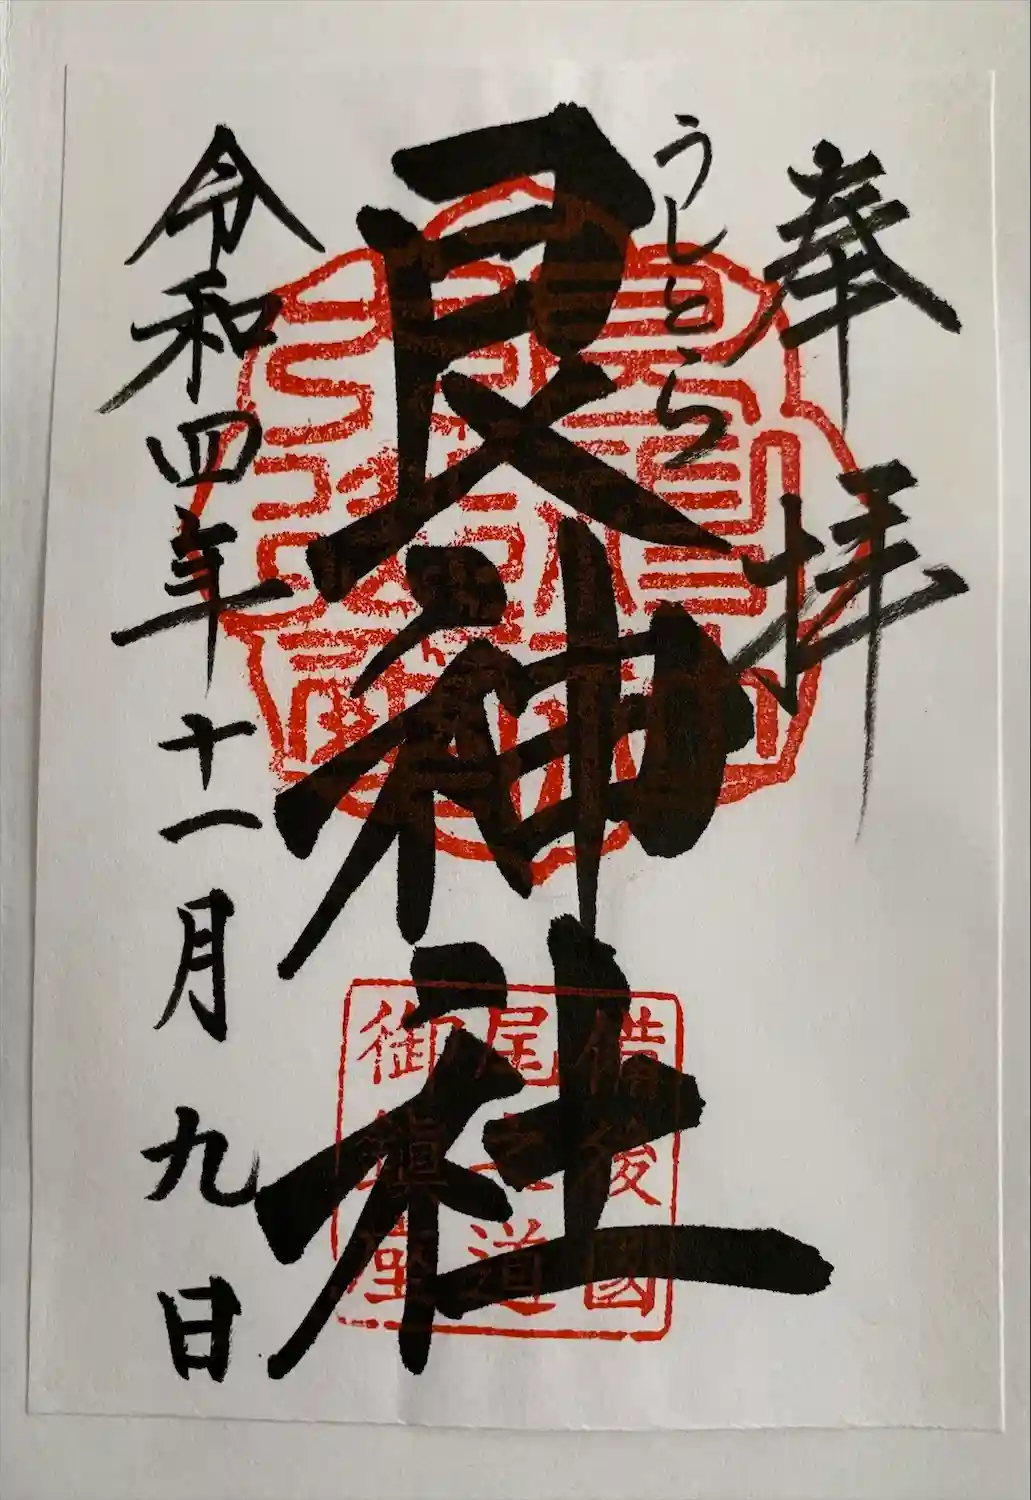 奉拝
うしとら
艮神社
備後國
尾之道
御鎮座
令和四年十一月九日